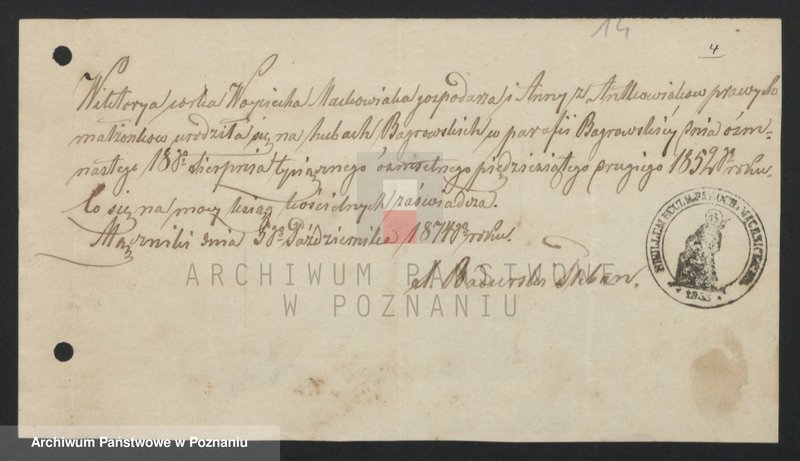 14
4
Wiktorya córka Woyciecha Maćkowiaka gospodarza i Anny z Antkowiaków prawych
małżonków urodziła się na hubach Bagrowskich, w parafii Bagrowskiéy, dnia ośm-
nastego 18go Sierpnia tysiącznego ośmsetnego pięćdziesiątego drugiego 1852go roku.
Co się na mocy ksiąg kościelnych zaświadcza.
Mączniki dnia 5go Października 1874go roku.
ARCHIWUM PAŃSTWOWE
W POZNANIU
SIGILLUM ECCL.
Pleban.
Archiwum Państwowe w Poznaniu